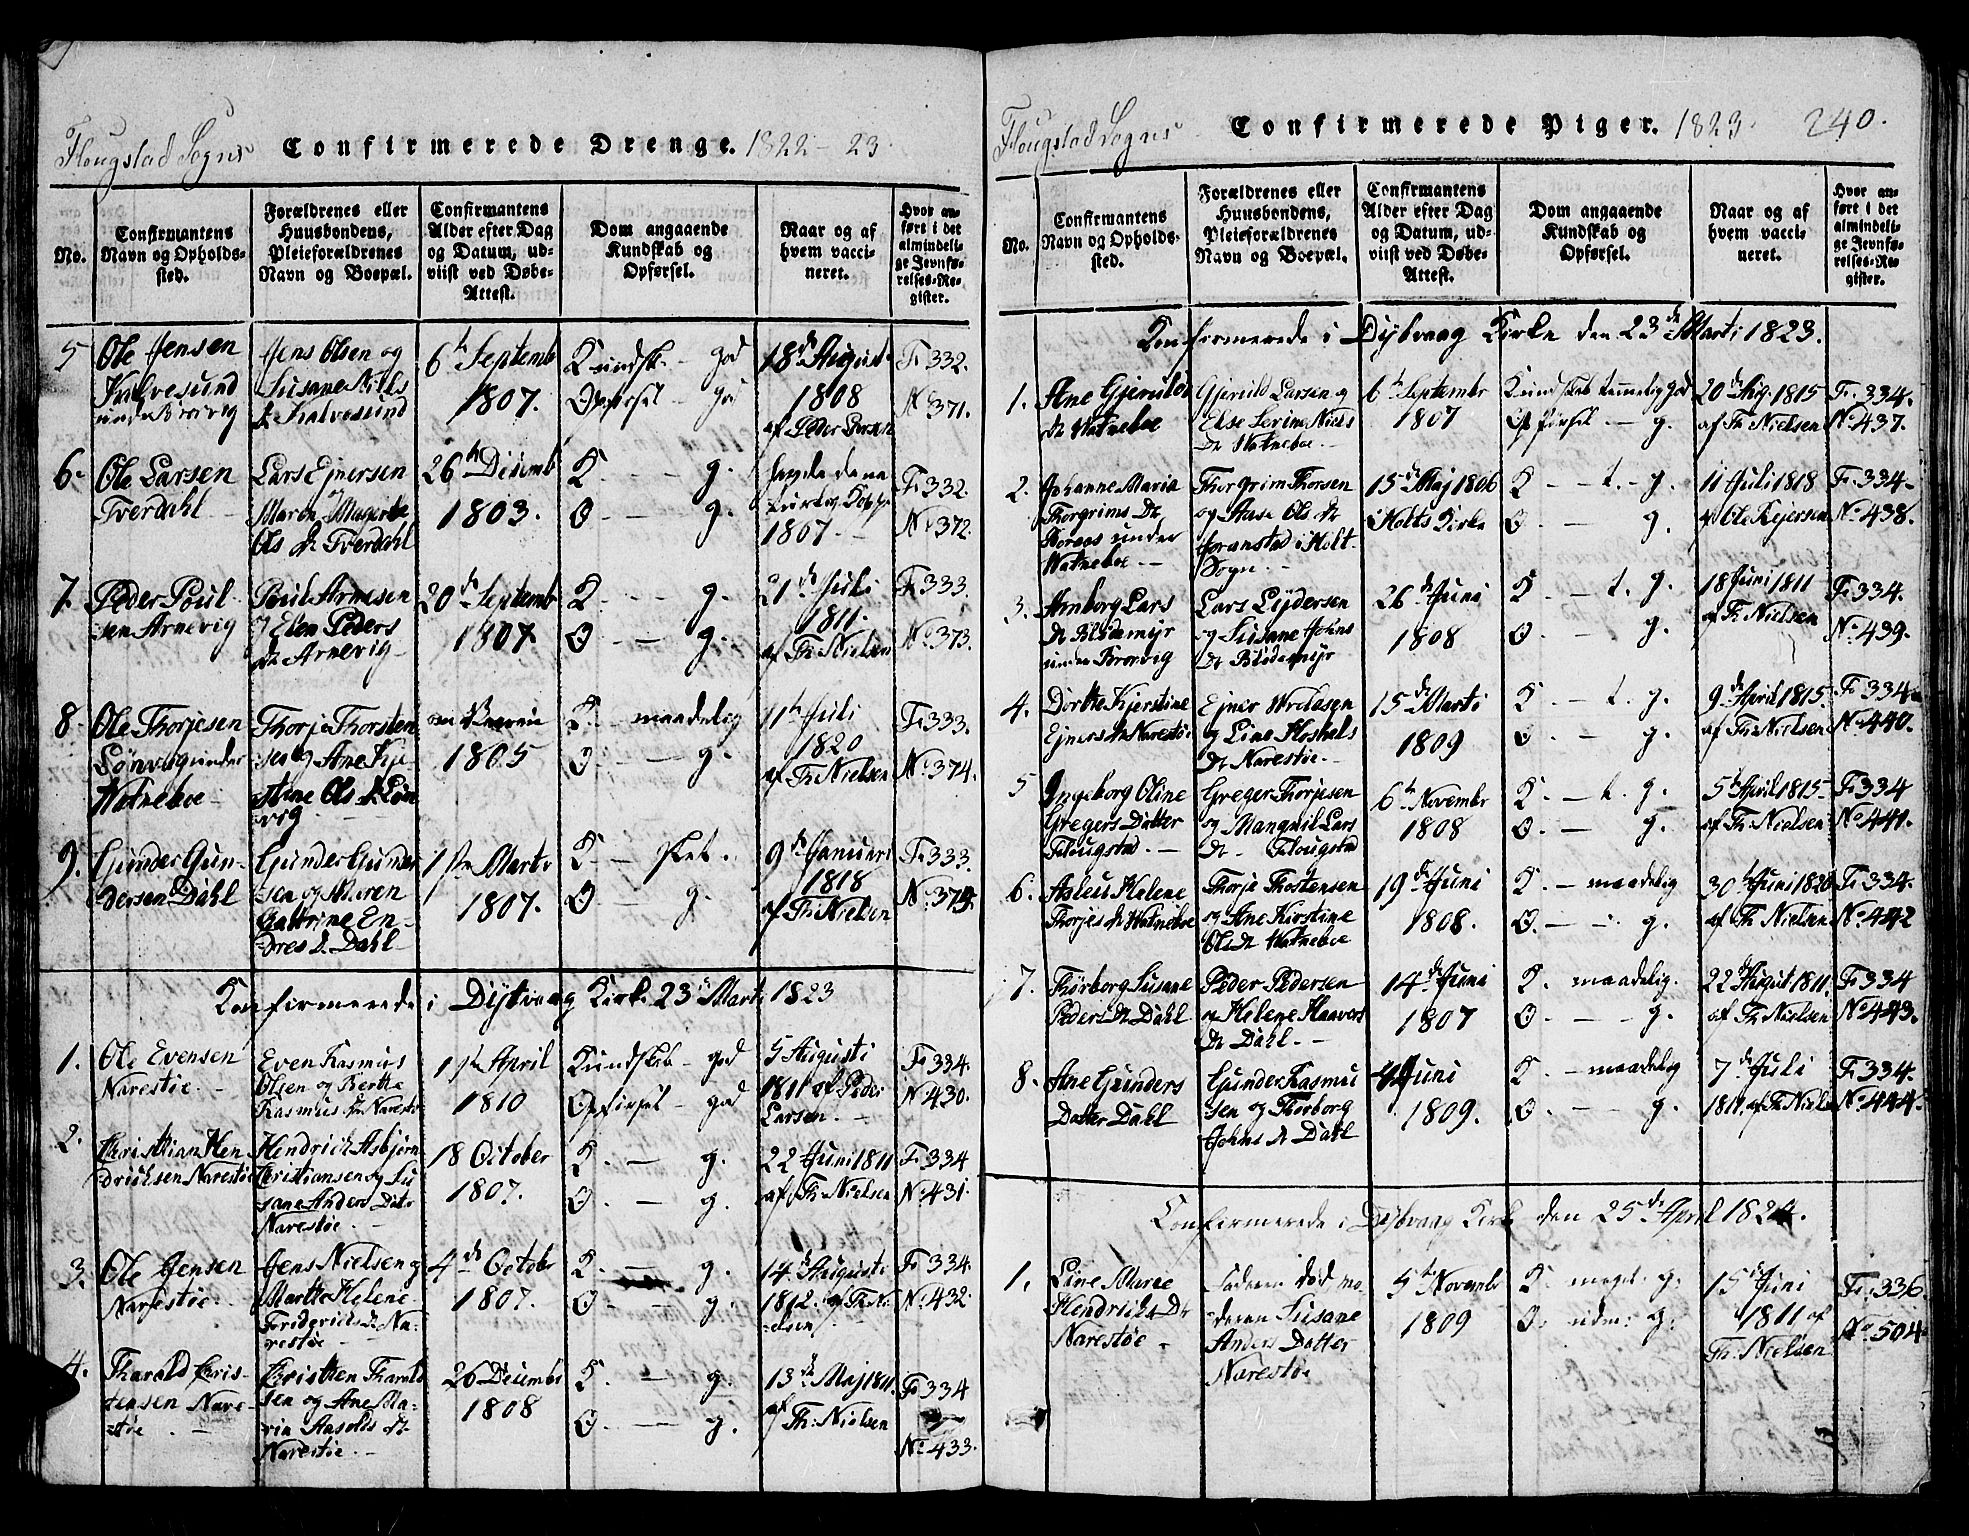 Flougstad Sogns Confirmerede Drenge. 1822 - 23.
No.
Confirmantens
Navn og Opholds-
sted.
Forældrenes eller
Huusbondens,
Pleieforældrenes
Navn og Boepæl.
Confirmantens
Alder efter Dag
og Datum, ud-
viist ved Døbe-
Attest.
Dom angaaende
Kundskab og
Opførsel.
Naar og af
hvem vacci-
neret.
Hvor an-
ført i det
almindeli-
ge Jevnfø-
relses-Re-
gister.
5
Ole Jensen
Kalvesund
Jens Olsen og
Susane Niels
Dr Kalvesund
6th Septembr
1807.
Kundsk. - god
Opførsel - god
18de August
1808
af Peder Larsen
F: 332.
No 371.
6.
Ole Larsen
Tverdahl
Lars Ejnersen
og
Maren Magrethe
Ols Dr Tverdahl
26th Decemb
1803.
K - - g.
O - - g.
1807. -
F: 332.
No 372.
7.
Peder Poul
sen Arnevig
Poul Arnesen
og Elen Peders
Dr Arnevig
20de Septemb
1807.
K - - g.
O - - g.
21de Juli
1811.
af Th: Nielsen
F: 333.
No 373.
8.
Ole Thorjesen
Lønvig under
Watneboe -
Thorje Thorsten
sen og Ane Kje-
stine Ols Dr Løn
vig
1805
K. - maadelig
O. - - g.
11th Juli
1820
af Th: Nielsen
F: 333.
No 374.
9.
Gunder Gun-
dersen Dahl
Gunder Gunder
sen og Maren
Cathrine En-
dres D. Dahl
1ste Marts
1807.
K. -
O - g.
9de Januari
1818
af Th: Nielsen
F: 333.
Konfirmerede i Dybvaag Kirke 23de Marti 1823
1.
Ole Evensen
Narestøe. -
Even Rasmus
Olsen og Berthe
Rasmus Dr Narestøe
1ste April
1810
Kundskab - god
Opførsel - god
5 Augusti
1811 af Peder
Larsen. -
F: 334.
No 430.
2.
Christian Hen
drichsen Narestøe
Hendrich Asbjørn
Christiansen og Su
sane Anders Datr
Narestøe. -
18 October
1807.
K. - g.
O. - g.
22 Juni 1811
af Th: Nielsen
F: 334
No 431.
3.
Ole Jensen
Narestøe.
Jens Nielsen og
Marthe Helene
Friderichs Dr Na-
restøe
4de Octobr
1807.
K. - g.
O. - - g.
14de Augusti
1812. af Th: Ni-
elsen
F: 334.
No 432.
4.
Tharald Chris-
tensen Nare-
støe. -
Christen Tharald
sen og Ane Ma-
ria Aasolds Dr
Narestøe. -
26 Decembr
1808
K. - g.
O. - - g.
13de Maj 1811.
af Th: Nielsen
F: 334
No 433.
Flougstad Sogns Confirmerede Piger. 1823. 240.
No.
Confirmantens
Navn og Opholds-
sted.
Forældrenes eller
Huusbondens,
Pleieforældrenes
Navn og Boepæl.
Confirmantens
Alder efter Dag
og Datum, ud-
viist ved Døbe-
Attest.
Dom angaaende
Kundskab og
Opførsel.
Naar og af
hvem vacci-
neret.
Hvor an-
ført i det
almindeli-
ge Jevnfø-
relses-Re-
gister.
Konfirmerede i Dybvaag Kirke den 23de Marti 1823.
1.
Ane Gjerulds
Dr Watneboe
Gjeruld Larsen og
Else Serine Niels
Dr Watneboe. -
6th Septembr
1807
Kundskab temmelig god
Opførsel - g.
20de Aug. 1815
af Th: Nielsen
F: 334.
No 437.
2.
Johanne Maria
Thorgrims Dr
under
Watneboe. -
Thorgrim Thorsen
og Aase Ols Dr
i Holt
Sogn. -
15de Maj 1806
i Holts Kirke
K - t. - g.
O. - - g.
11 Juli 1818
af Ole Rejersen
F: 334.
No 438.
3.
Arnborg Lars
Dr Blødemyr
under
Lars Lydersen
og Susane Johns
Dr Blødemyr
26de Juni
1808
K - - t. g.
O. - - g.
18 Juni 1811
af Th: Nielsen
F: 334.
No 439.
4.
Dorthe Kjerstine
Ejners Dr Narestøe
Ejner
og Line
Dr Narestøe. -
15de Marti
1809
K - t. g.
O. - - g.
9de April 1815.
af Th: Nielsen
F: 334.
No 440.
5
Ingeborg Oline
Gregers Datter
Flougstad. -
Greger Thorjesen
og Lars
Dr - Flougstad
6th Novembr
1808
K. - t. g.
O. - g.
5th April 1815
af Th: Nielsen
F: 334
No 441.
6.
Helene
Thorjes Dr Watneboe
Thorje Thostensen
og Ane Kirstine
Ols Dr Watneboe
19de Juni
1808.
K. - maadelig
O. - - g.
30th Juni 1820
af Th: Nielsen
F: 334.
No 442
7.
Thorborg Susane
Peders Dr Dahl
Peder Pedersen
og Helene Haavors
Dr Dahl. -
14de Juni
1807
K. maadelig.
O. - - g.
22 August 1811.
af Th: Nielsen
F: 334
No 443.
8.
Ane Gunders
Datter Dahl
Gunder Rasmu
sen og Thorborg
Johns Dr Dahl
Juni
1809.
K. - maadelig
O. - - g.
7de Juli
1811. af Th: Nielsen
F: 334.
No 444.
Confirmerede i Dybvaag Kirke den 25de April 1824.
1.
Line Marie
Hendrichs Dr
Narestøe -
Faderen død mo-
deren Susane
Anders Datter
Narestøe
5th Novembr
1809
K. meget g.
O. g.
15de Juni
1811 af
Th: Nielsen
F: 336.
No 504.